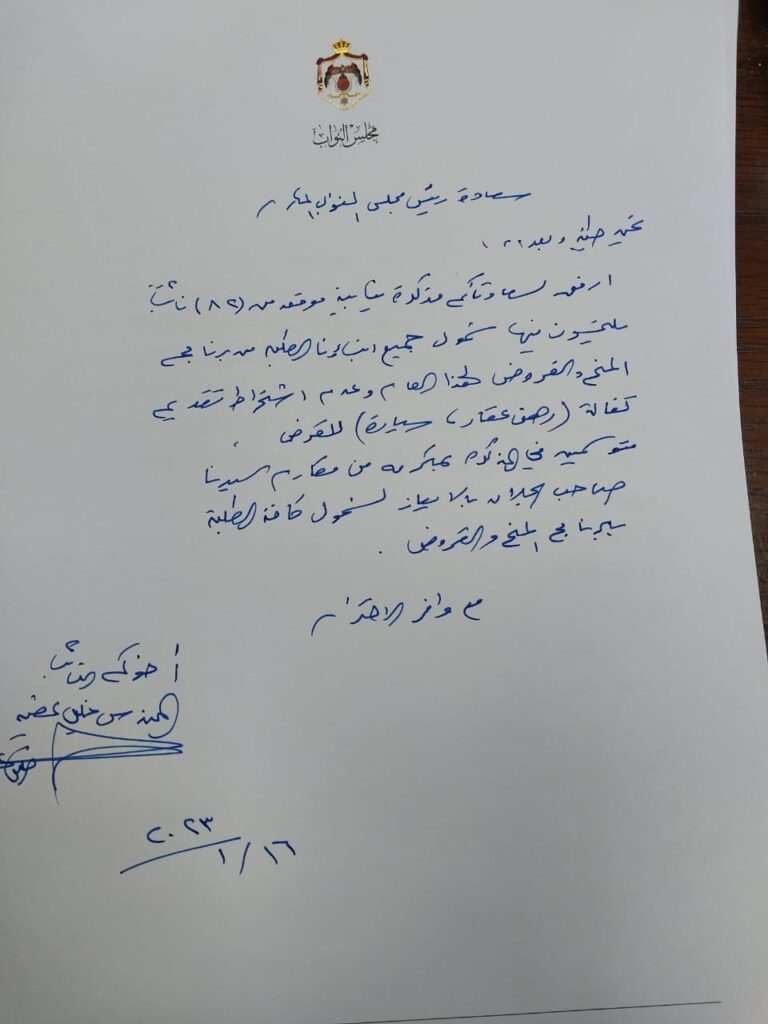 مجلس النواب
سعادة رئيس مجلس النواب المكرم
تحية طيبة وبعد،،،
ارفق لسعادتكم مذكرة نيابية موقعه من (٨٢) نائباً
ملتمسون منها شمول جميع ابنائنا الطلبه من برنامج
المنح والقروض لهذا العام وعدم اشتراط تقديم
كفالة (رهن عقار، سيارة) للقرض.
متوسمين في بمكرمه من مكارم سيدنا
صاحب الجلالة بالايعاز لشمول كافة الطلبة
ببرنامج المنح والقروض.
مع وافر الاحترام
أخوكم النائب
المهندس خليل عطيه
٢٠٢٣
١٦ / ١